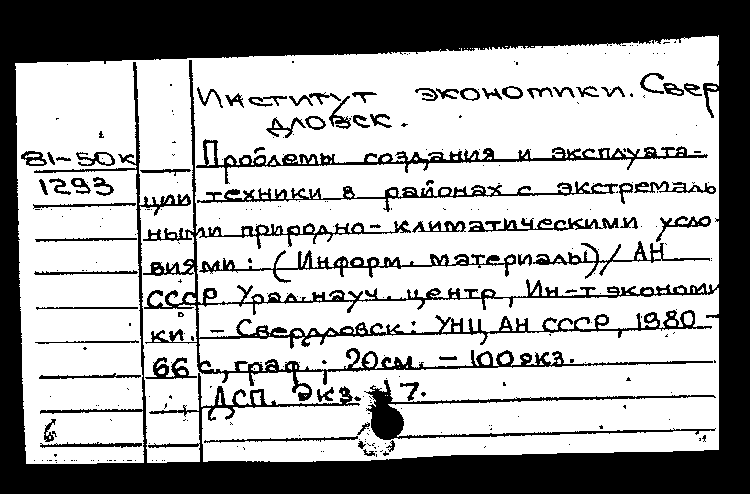 Институт экономики. Свер
дловск.
81-50к Проблемы создания и эксплуата-
1293 ции техники в районах с экстремаль
ными природно-климатическими усло-
виями: (Информ. материалы) / АН
СССР Урал. науч. центр, Ин-т экономи
ки. - Свердловск: УНЦ АН СССР, 1980 -
66 с., граф.; 20см. - 100экз.
ДСП. Экз. 17.
6